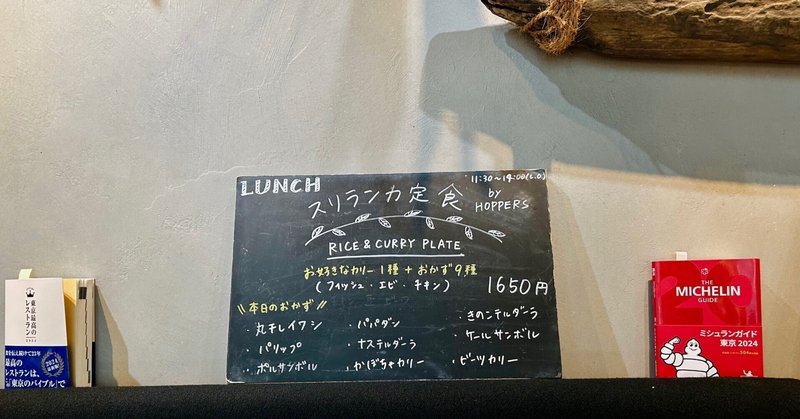 LUNCH
11:30〜14:00(L.O)
スリランカ定食
by
HOPPERS
RICE & CURRY PLATE
お好きなカリー1種+おかず9種
(フィッシュ・エビ・チキン)
1650円
\\本日のおかず//
・丸干しイワシ
・パリップ
・ポルサンボル
・パパダン
・ナステルダーラ
・かぼちゃカリー
・きのこテルダーラ
・ケールサンボル
・ビーツカリー
東京最高の
レストラン
2024
最高の
レストランは、
「東京のバイブル」で
THE
MICHELIN
GUIDE
ミシュランガイド
東京 2024